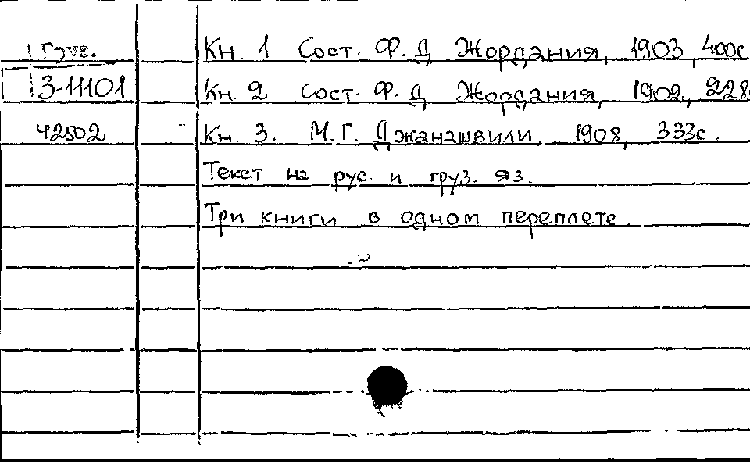 Груз. Кн. 1 Сост. Ф. Д Жордания, 1903, 400с
3-11101 Кн. 2 Сост. Ф. Д Жордания, 1902, 228
42502 Кн. 3. М. Г. Джанашвили 1908, 333с.
Текст на рус. и груз. яз.
Три книги в одном переплете.